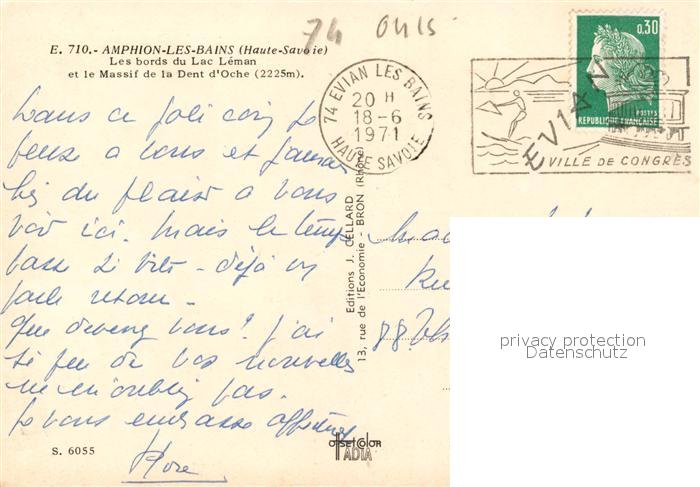 74 0415
E. 710.- AMPHION-LES-BAINS (Haute-Savoie)
Les bords du Lac Léman
et le Massif de la Dent d'Oche (2225m).
74 EVIAN LES BAINS
20 H
18-6
1971
HAUTE SAVOIE
0,30
POSTES
REPUBLIQUE FRANÇAISE
EVIAN
VILLE DE CONGRÈS
Dans ce joli coin je
pense à vous et j'aurais
du plaisir à vous
voir ici. Mais le temps
passe si vite - déjà on
parle retour.
Que devenez vous? j'ai
si peu de vos nouvelles
ne m'oubliez pas.
Je vous embrasse affectueusement
S. 6055
Editions J. CELLARD
13, rue de l'Economie - BRON (Rhône)
OFFSETCOLOR
ADIA
privacy protection
Datenschutz